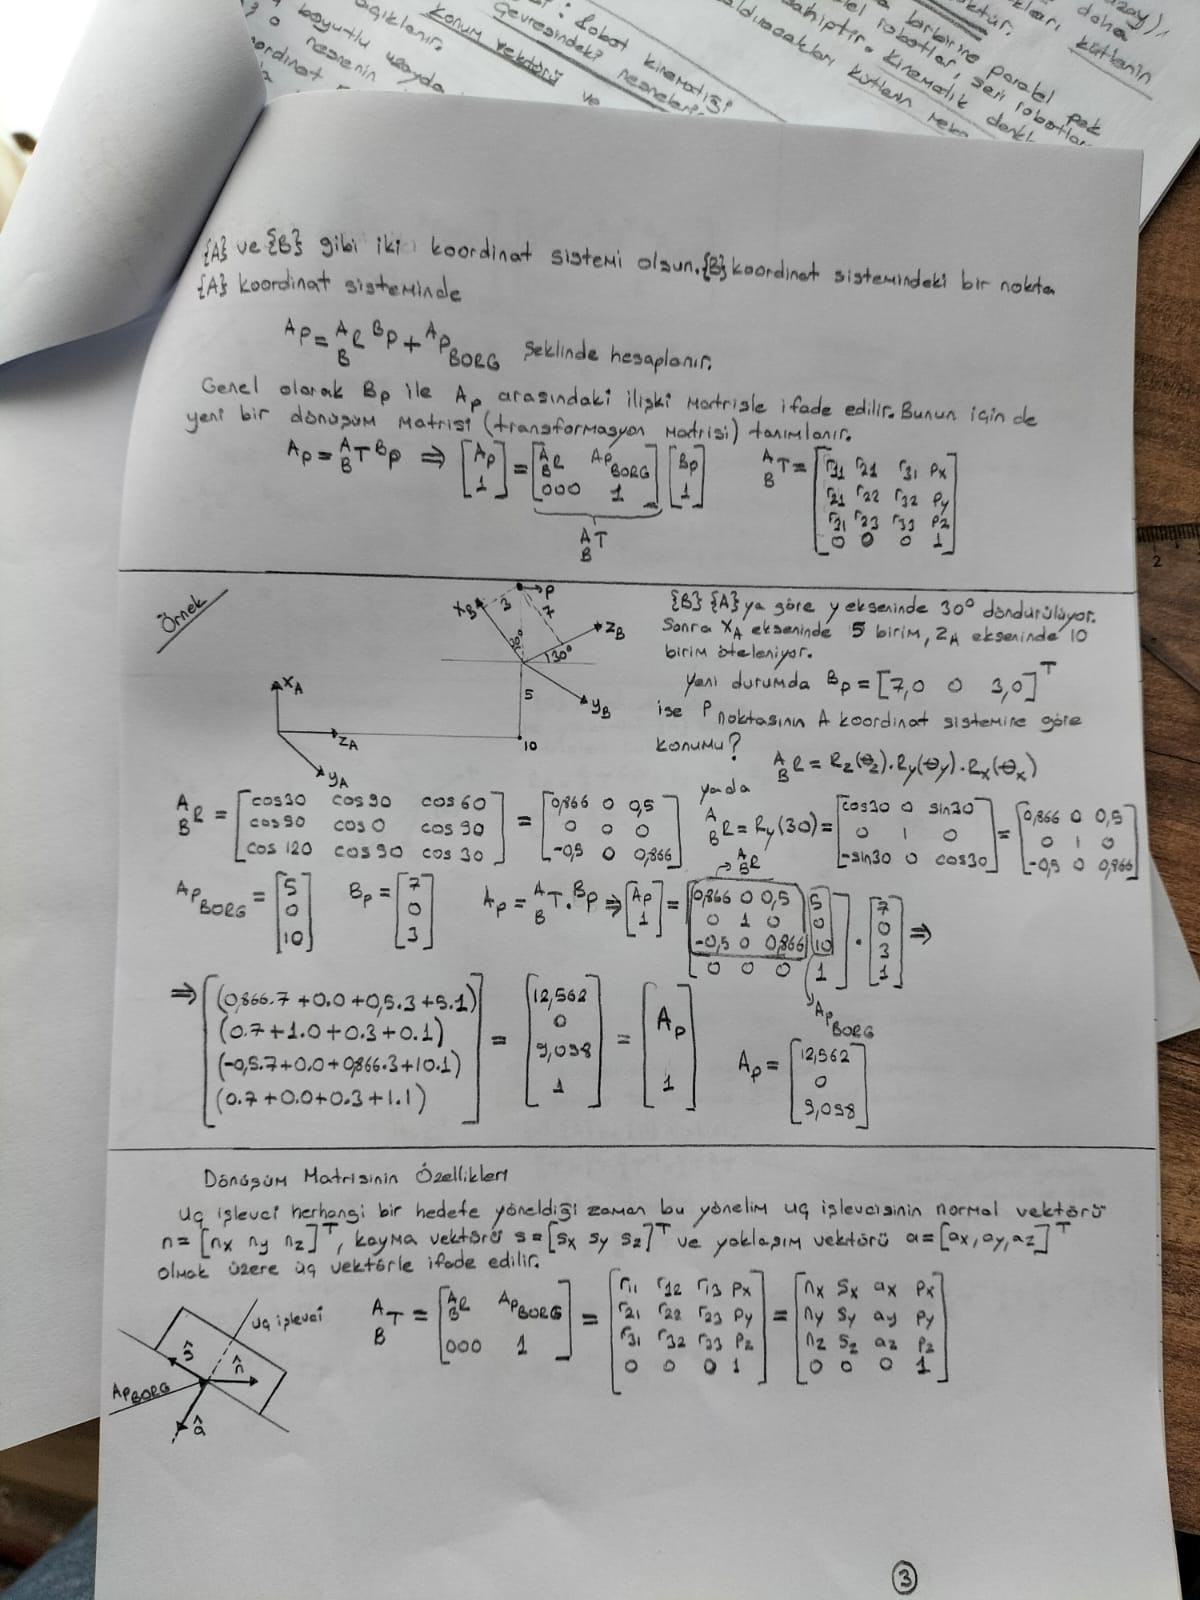 Robot kinematiği
Çevresindeki nesneleri
konum vektörü ve
açıklanır.
boyutlu uzayda
nesnenin
birbirine paralel pek
robotlar, seri robotlar
sahiptir. Kinematik denkl
kütlenin
daha
{A} ve {B} gibi iki koordinat sistemi olsun. {B} koordinat sistemindeki bir nokta
{A} koordinat sisteminde
ᴬP = ᴬ_B R ᴮP + ᴬP_BORG şeklinde hesaplanır.
Genel olarak Bp ile Ap arasındaki ilişki matrisle ifade edilir. Bunun için de
yeni bir dönüşüm matrisi (transformasyon matrisi) tanımlanır.
Ap = ᴬ_B T Bp ⇒ [Ap 1] = [ᴬ_B R Ap_BORG 000 1] [Bp 1] ᴬ_B T = [r11 r21 r31 Px
r21 r22 r32 Py
r31 r23 r33 Pz
0 0 0 1]
ᴬ_B T
Örnek
X_B 3 P 7 Z_B 30° 30° 5 Y_B 10
X_A Z_A Y_A
{B} {A} ya göre y ekseninde 30° döndürülüyor.
Sonra X_A ekseninde 5 birim, Z_A ekseninde 10
birim öteleniyor.
Yeni durumda ᴮP = [7,0 0 3,0]ᵀ
ise P noktasının A koordinat sistemine göre
konumu?
ᴬ_B R = Rz(θz).Ry(θy).Rx(θx)
yada
ᴬ_B R = [cos30 cos90 cos60
cos90 cos0 cos90
cos120 cos90 cos30] = [0,866 0 0,5
0 0 0
-0,5 0 0,866]
ᴬ_B R = Ry(30) = [cos30 0 sin30
0 1 0
-sin30 0 cos30] = [0,866 0 0,5
0 1 0
-0,5 0 0,866]
ᴬP_BORG = [5 0 10] ᴮP = [7 0 3] Ap = ᴬ_B T.Bp ⇒ [Ap 1] = [0,866 0 0,5 5
0 1 0 0
-0,5 0 0,866 10
0 0 0 1] . [7 0 3 1] ⇒
ᴬ_B R
ᴬP_BORG
⇒ [(0,866.7+0.0+0,5.3+5.1)
(0.7+1.0+0.3+0.1)
(-0,5.7+0.0+0,866.3+10.1)
(0.7+0.0+0.3+1.1)] = [12,562 0 9,098 1] = [Ap 1]
Ap = [12,562 0 9,098]
Dönüşüm Matrisinin Özellikleri
Uç işlevci herhangi bir hedefe yöneldiği zaman bu yönelim uç işlevcisinin normal vektörü
n=[nx ny nz]ᵀ, kayma vektörü s=[sx sy sz]ᵀ ve yaklaşım vektörü a=[ax, ay, az]ᵀ
olmak üzere üç vektörle ifade edilir.
uç işlevci
ŝ n̂ â
Ap_BORG
ᴬ_B T = [ᴬ_B R Ap_BORG
000 1] = [r11 r12 r13 Px
r21 r22 r23 Py
r31 r32 r33 Pz
0 0 0 1] = [nx sx ax Px
ny sy ay Py
nz sz az Pz
0 0 0 1]
3
2